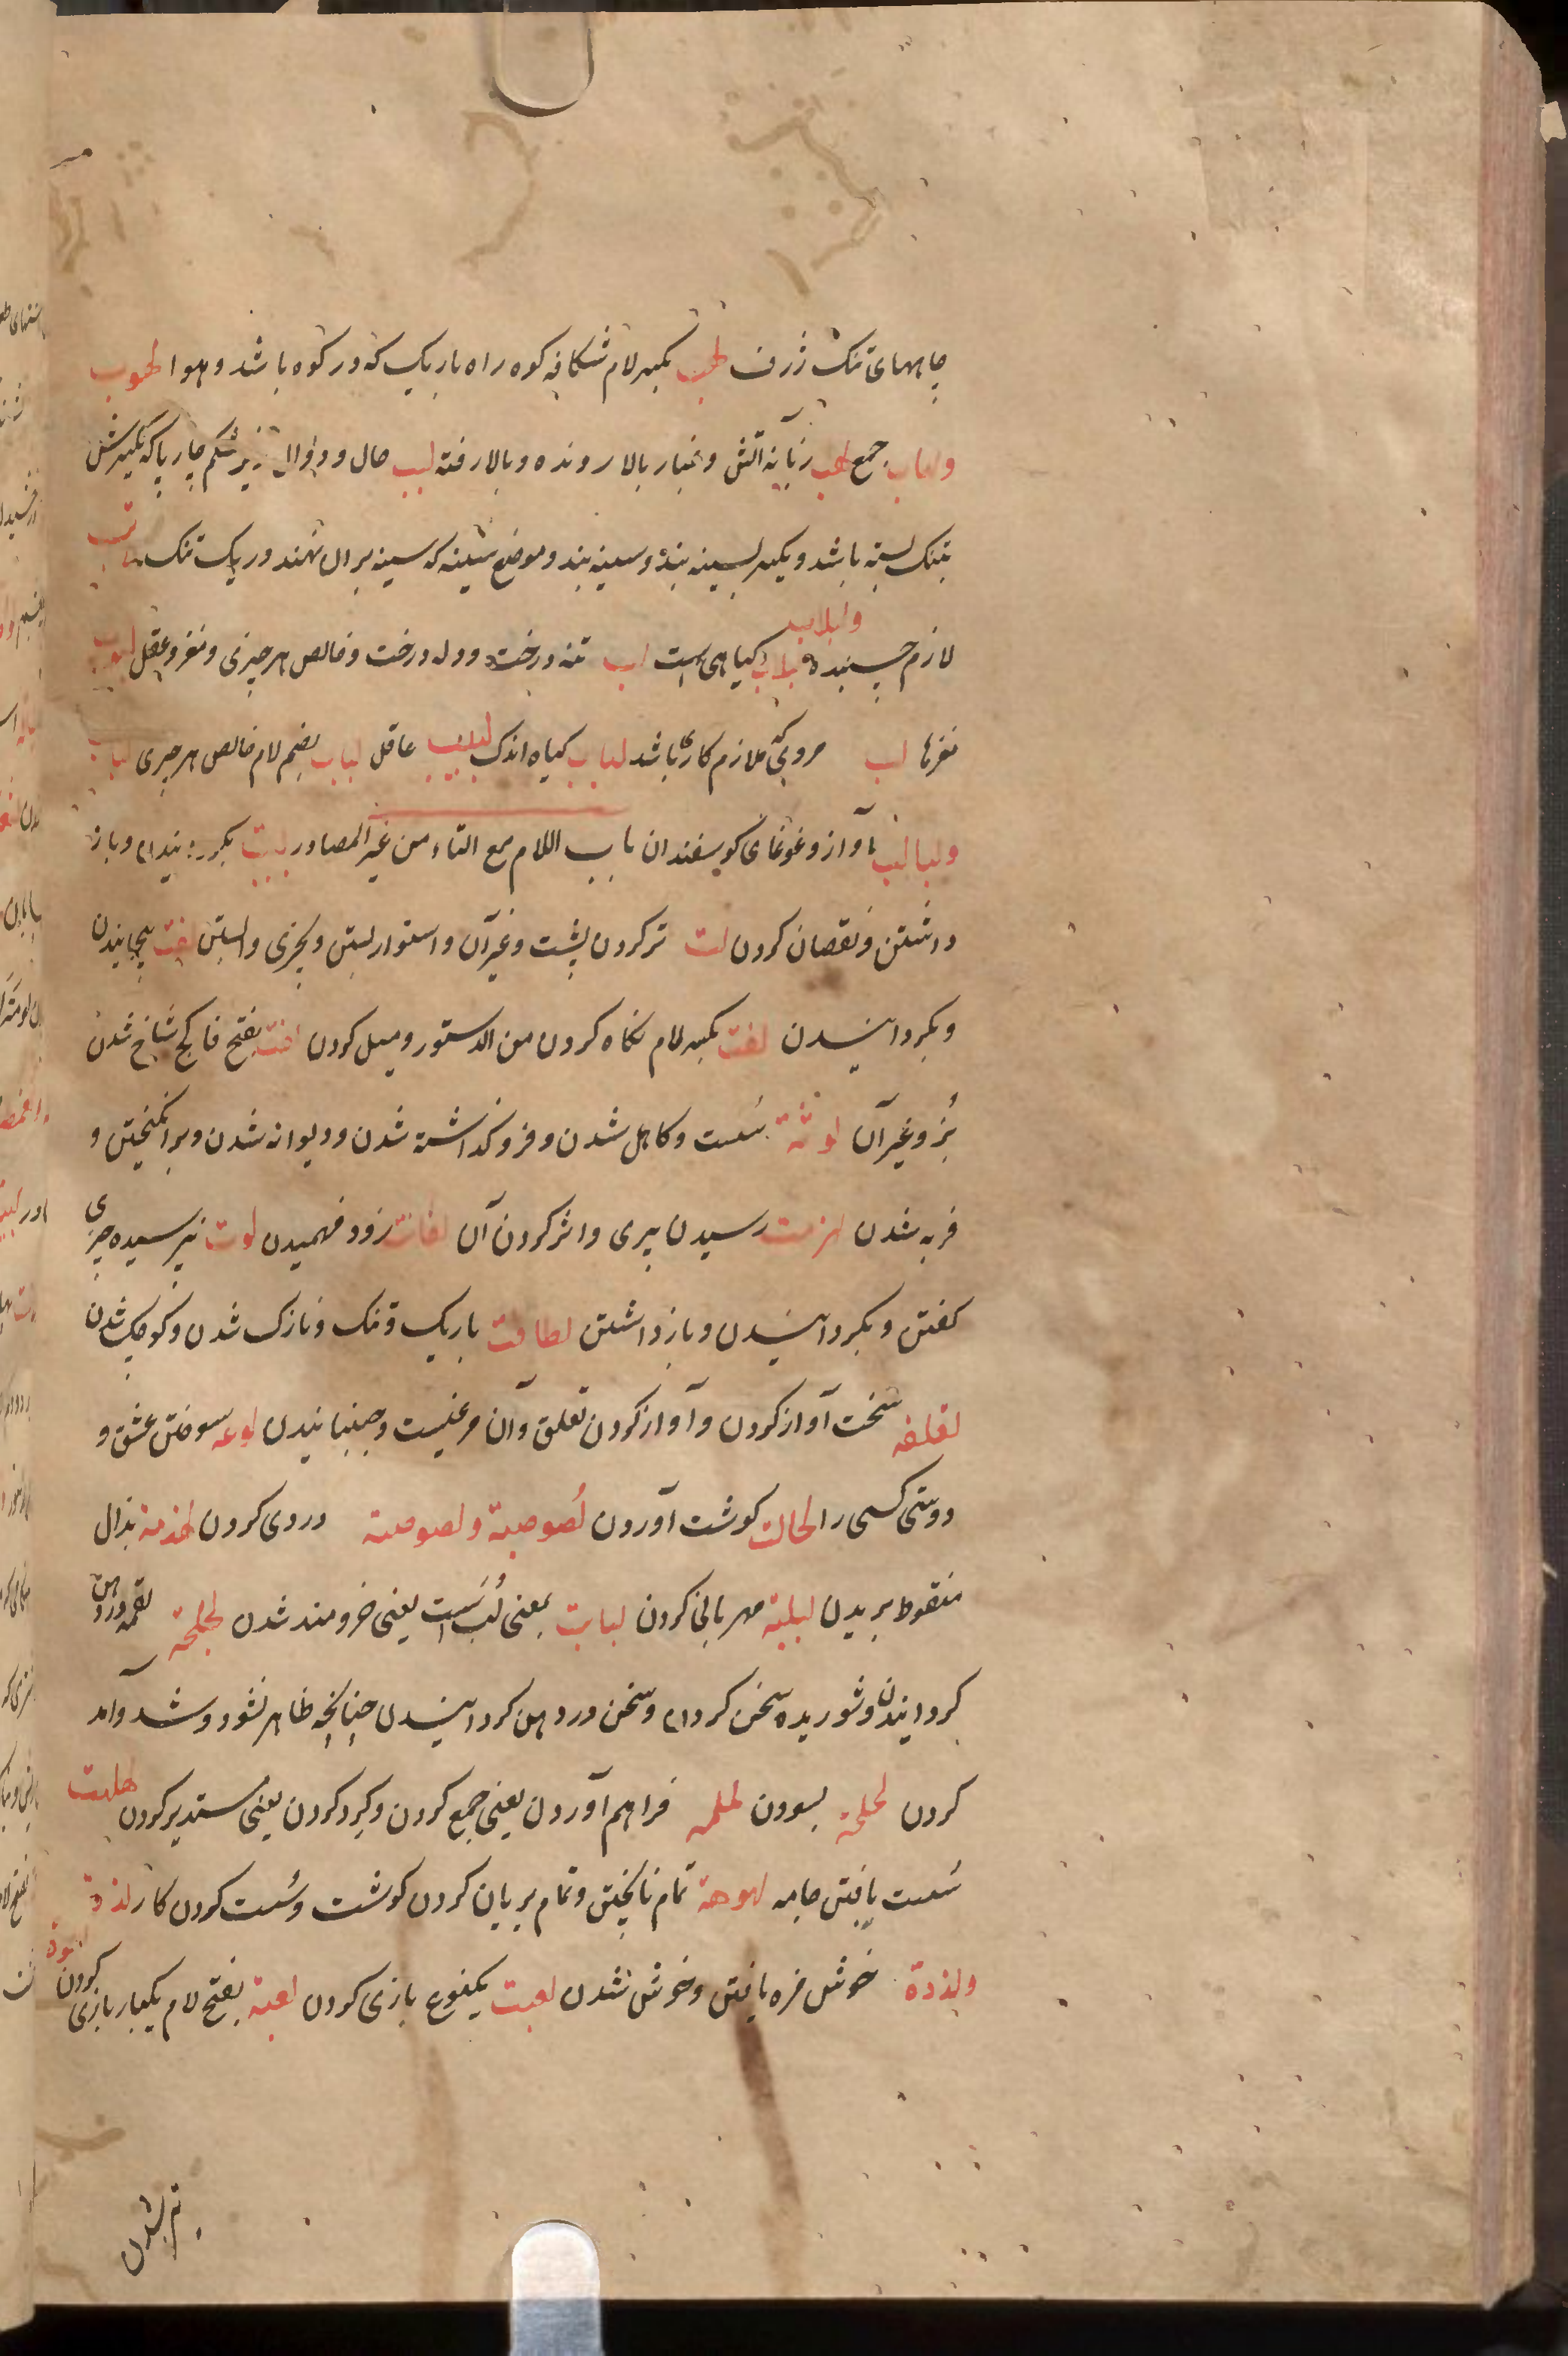 چاههای تنک ژرف لهب بکسر لام شکافه کوه راه باریک که در کوه باشد و هوا لهوب
ولهاب جمع لهب زبانه آتش و غبار بالا رونده و بالا رفته لبب حال و دوال زیر شکم چارپا که بکیرش
تنک بسته باشد و یکسر بسینه بند و سینه بند و موضع سینه که سینه بر آن نهند و ریک تنک لاتب
لازم چسبنده لبلاب ولبلاب کیاهی است لب تنه درخت و دل درخت و خالص هر چیزی و مغز و عقل لبوب
مغزها لب مردی که ملازم کاری باشد لباب کیاه اندک لبیب عاقل لباب بضم لام خالص هر چیزی لبالب
ولبالب آواز و غوغای کوسفندان باب اللام مع التاء من غیر المصادر لیت بکردانیدن و باز
داشتن و نقصان کردن لت تر کردن پشت و غیر آن و استوار بستن و بچیزی وابستن لفت پیچانیدن
و بکردانیدن لفت بکسر لام نکاه کردن من الدستور و میل کردن لفت بفتح فا کج شاخ شدن
بز و غیر آن لوثة سست و کاهل شدن و فروکذاشته شدن و دیوانه شدن و برانکیختن و
فربه شدن لهزمت رسیدن پیری و اثر کردن آن لقانت زود فهمیدن لوت نپرسیده چیزی
کفتن و بکردانیدن و باز داشتن لطافت باریک و تنک و نازک شدن و کوچک شدن
لقلقه سخت آواز کردن و آواز کردن لقلق و آن مرغیست و جنبانیدن لوعه سوختن عشق و
دوستی کسی را لحالت کوشت آوردن لُصوصیة و لصوصیة دزدی کردن لهذمة بذال
منقوط بریدن لبلبة مهربانی کردن لبابت بمعنی لُب است یعنی خردمند شدن لجلجة لقمه در دهن
کردانیدن و شوریده سخن کردن و سخن در دهن کردانیدن چنانچه ظاهر نشود و شد و آمد
کردن لحلحة بسودن لملمه فراهم آوردن یعنی جمع کردن و کرد کردن یعنی مستدیر کردن هلهلت
سست بافتن جامه لهوهة تمام ناپختن و تمام بریان کردن کوشت و سست کردن کار لذة
ولذذة خوش مزه یافتن و خوش شدن لعبت یکنوع بازی کردن لعبة بفتح لام یکبار بازی کردن
تر شدن